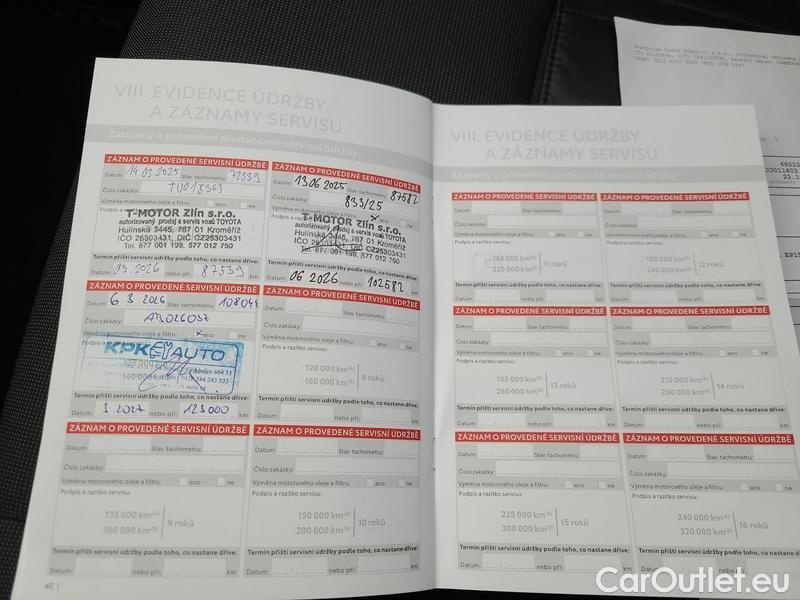 VIII. EVIDENCE ÚDRŽBY
A ZÁZNAMY SERVISU
Záznamy o provedení předepsané servisní údržby
ZÁZNAM O PROVEDENÉ SERVISNÍ ÚDRŽBĚ
Datum: 14 03 2025 Stav tachometru: 72539
Číslo zakázky:
Výměna motorového oleje a filtru: ano ne
T-MOTOR Zlín s.r.o.
autorizovaný prodej a servis vozů TOYOTA
Hulínská 3445, 767 01 Kroměříž
IČO 25303431, DIČ CZ25303431
Tel. 677 001 199, 577 012 750
Termín příští servisní údržby podle toho, co nastane dříve:
03 2026 87539
ZÁZNAM O PROVEDENÉ SERVISNÍ ÚDRŽBĚ
Datum: 13 06 2025 Stav tachometru: 87582
Číslo zakázky: 833/25
Výměna motorového oleje a filtru: x ano ne
T-MOTOR Zlín s.r.o.
autorizovaný prodej a servis vozů TOYOTA
Hulínská 3445, 767 01 Kroměříž
IČO 25303431, DIČ CZ25303431
Tel. 677 001 199, 577 012 750
Termín příští servisní údržby podle toho, co nastane dříve:
06 2026 102582 km
ZÁZNAM O PROVEDENÉ SERVISNÍ ÚDRŽBĚ
Datum: 6 3 2026 Stav tachometru:
Číslo zakázky:
Výměna motorového oleje a filtru: x ano ne
KPK AUTO
Termín příští servisní údržby podle toho, co nastane dříve:
3 2027 nebo při: 123000
ZÁZNAM O PROVEDENÉ SERVISNÍ ÚDRŽBĚ
Datum: Stav tachometru: km
Číslo zakázky:
Výměna motorového oleje a filtru: ano ne
Podpis a razítko servisu:
120 000 km(A)
160 000 km(B)
8 roků
Termín příští servisní údržby podle toho, co nastane dříve:
Datum: nebo při: km
ZÁZNAM O PROVEDENÉ SERVISNÍ ÚDRŽBĚ
Datum: Stav tachometru: km
Číslo zakázky:
Výměna motorového oleje a filtru: ano ne
Podpis a razítko servisu:
135 000 km(A)
180 000 km(B)
9 roků
Termín příští servisní údržby podle toho, co nastane dříve:
Datum: nebo při: km
ZÁZNAM O PROVEDENÉ SERVISNÍ ÚDRŽBĚ
Datum: Stav tachometru: km
Číslo zakázky:
Výměna motorového oleje a filtru: ano ne
Podpis a razítko servisu:
150 000 km(A)
200 000 km(B)
10 roků
Termín příští servisní údržby podle toho, co nastane dříve:
Datum: nebo při: km
40 |
VIII. EVIDENCE ÚDRŽBY
A ZÁZNAMY SERVISU
Záznamy o provedení předepsané servisní údržby
ZÁZNAM O PROVEDENÉ SERVISNÍ ÚDRŽBĚ
Datum: Stav tachometru: km
Číslo zakázky:
Výměna motorového oleje a filtru: ano ne
Podpis a razítko servisu:
165 000 km(A)
220 000 km(B)
11 roků
Termín příští servisní údržby podle toho, co nastane dříve:
Datum: nebo při: km
ZÁZNAM O PROVEDENÉ SERVISNÍ ÚDRŽBĚ
Datum: Stav tachometru:
Číslo zakázky:
Výměna motorového oleje a filtru: ano ne
Podpis a razítko servisu:
180 000 km(A)
240 000 km(B)
12 roků
Termín příští servisní údržby podle toho, co nastane dříve:
Datum: nebo při:
ZÁZNAM O PROVEDENÉ SERVISNÍ ÚDRŽBĚ
Datum: Stav tachometru: km
Číslo zakázky:
Výměna motorového oleje a filtru: ano ne
Podpis a razítko servisu:
195 000 km(A)
260 000 km(B)
13 roků
Termín příští servisní údržby podle toho, co nastane dříve:
Datum: nebo při: km
ZÁZNAM O PROVEDENÉ SERVISNÍ ÚDRŽBĚ
Datum: Stav tachometru:
Číslo zakázky:
Výměna motorového oleje a filtru: ano ne
Podpis a razítko servisu:
210 000 km(A)
280 000 km(B)
14 roků
Termín příští servisní údržby podle toho, co nastane dříve:
Datum: nebo při: km
ZÁZNAM O PROVEDENÉ SERVISNÍ ÚDRŽBĚ
Datum: Stav tachometru: km
Číslo zakázky:
Výměna motorového oleje a filtru: ano ne
Podpis a razítko servisu:
225 000 km(A)
300 000 km(B)
15 roků
Termín příští servisní údržby podle toho, co nastane dříve:
Datum: nebo při: km
ZÁZNAM O PROVEDENÉ SERVISNÍ ÚDRŽBĚ
Datum: Stav tachometru:
Číslo zakázky:
Výměna motorového oleje a filtru: ano ne
Podpis a razítko servisu:
240 000 km(A)
320 000 km(B)
16 roků
Termín příští servisní údržby podle toho, co nastane dříve:
Datum: nebo při:
CarOutlet.eu